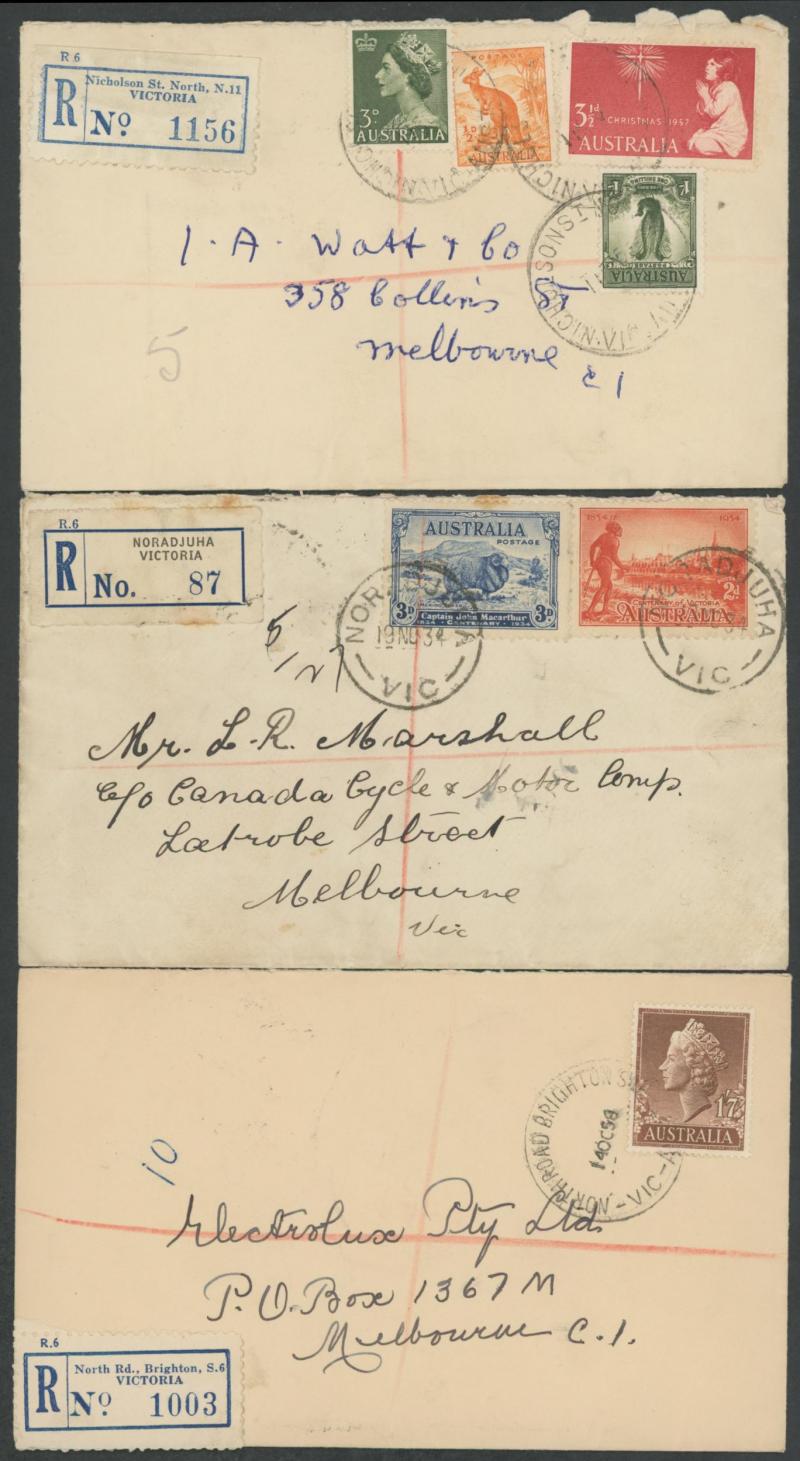 R 6
Nicholson St. North, N.11
VICTORIA
R Nº 1156
3D
AUSTRALIA
POSTAGE
½D
AUSTRALIA
3½d
CHRISTMAS 1957
AUSTRALIA
ONE SHILLING
1/-
POSTAGE
AUSTRALIA
I. A. Watt & Co
358 Collins St
Melbourne
C 1
5
R.6
NORADJUHA
VICTORIA
R No. 87
AUSTRALIA
POSTAGE
3D 3D
Captain John Macarthur
1834 CENTENARY 1934
1834 1934
2d
Centenary of Victoria
AUSTRALIA
NORADJUHA
19 NO 34
VIC
NORADJUHA
34
VIC
5/27
Mr. L. R. Marshall
c/o Canada Cycle & Motor Comp.
Latrobe Street
Melbourne
Vic
1/7
AUSTRALIA
NORTH ROAD BRIGHTON
14 OC 58
VIC-A
10
Electrolux Pty Ltd
P.O. Box 1367 M
Melbourne C.1.
R.6
North Rd., Brighton, S.6
VICTORIA
R Nº 1003